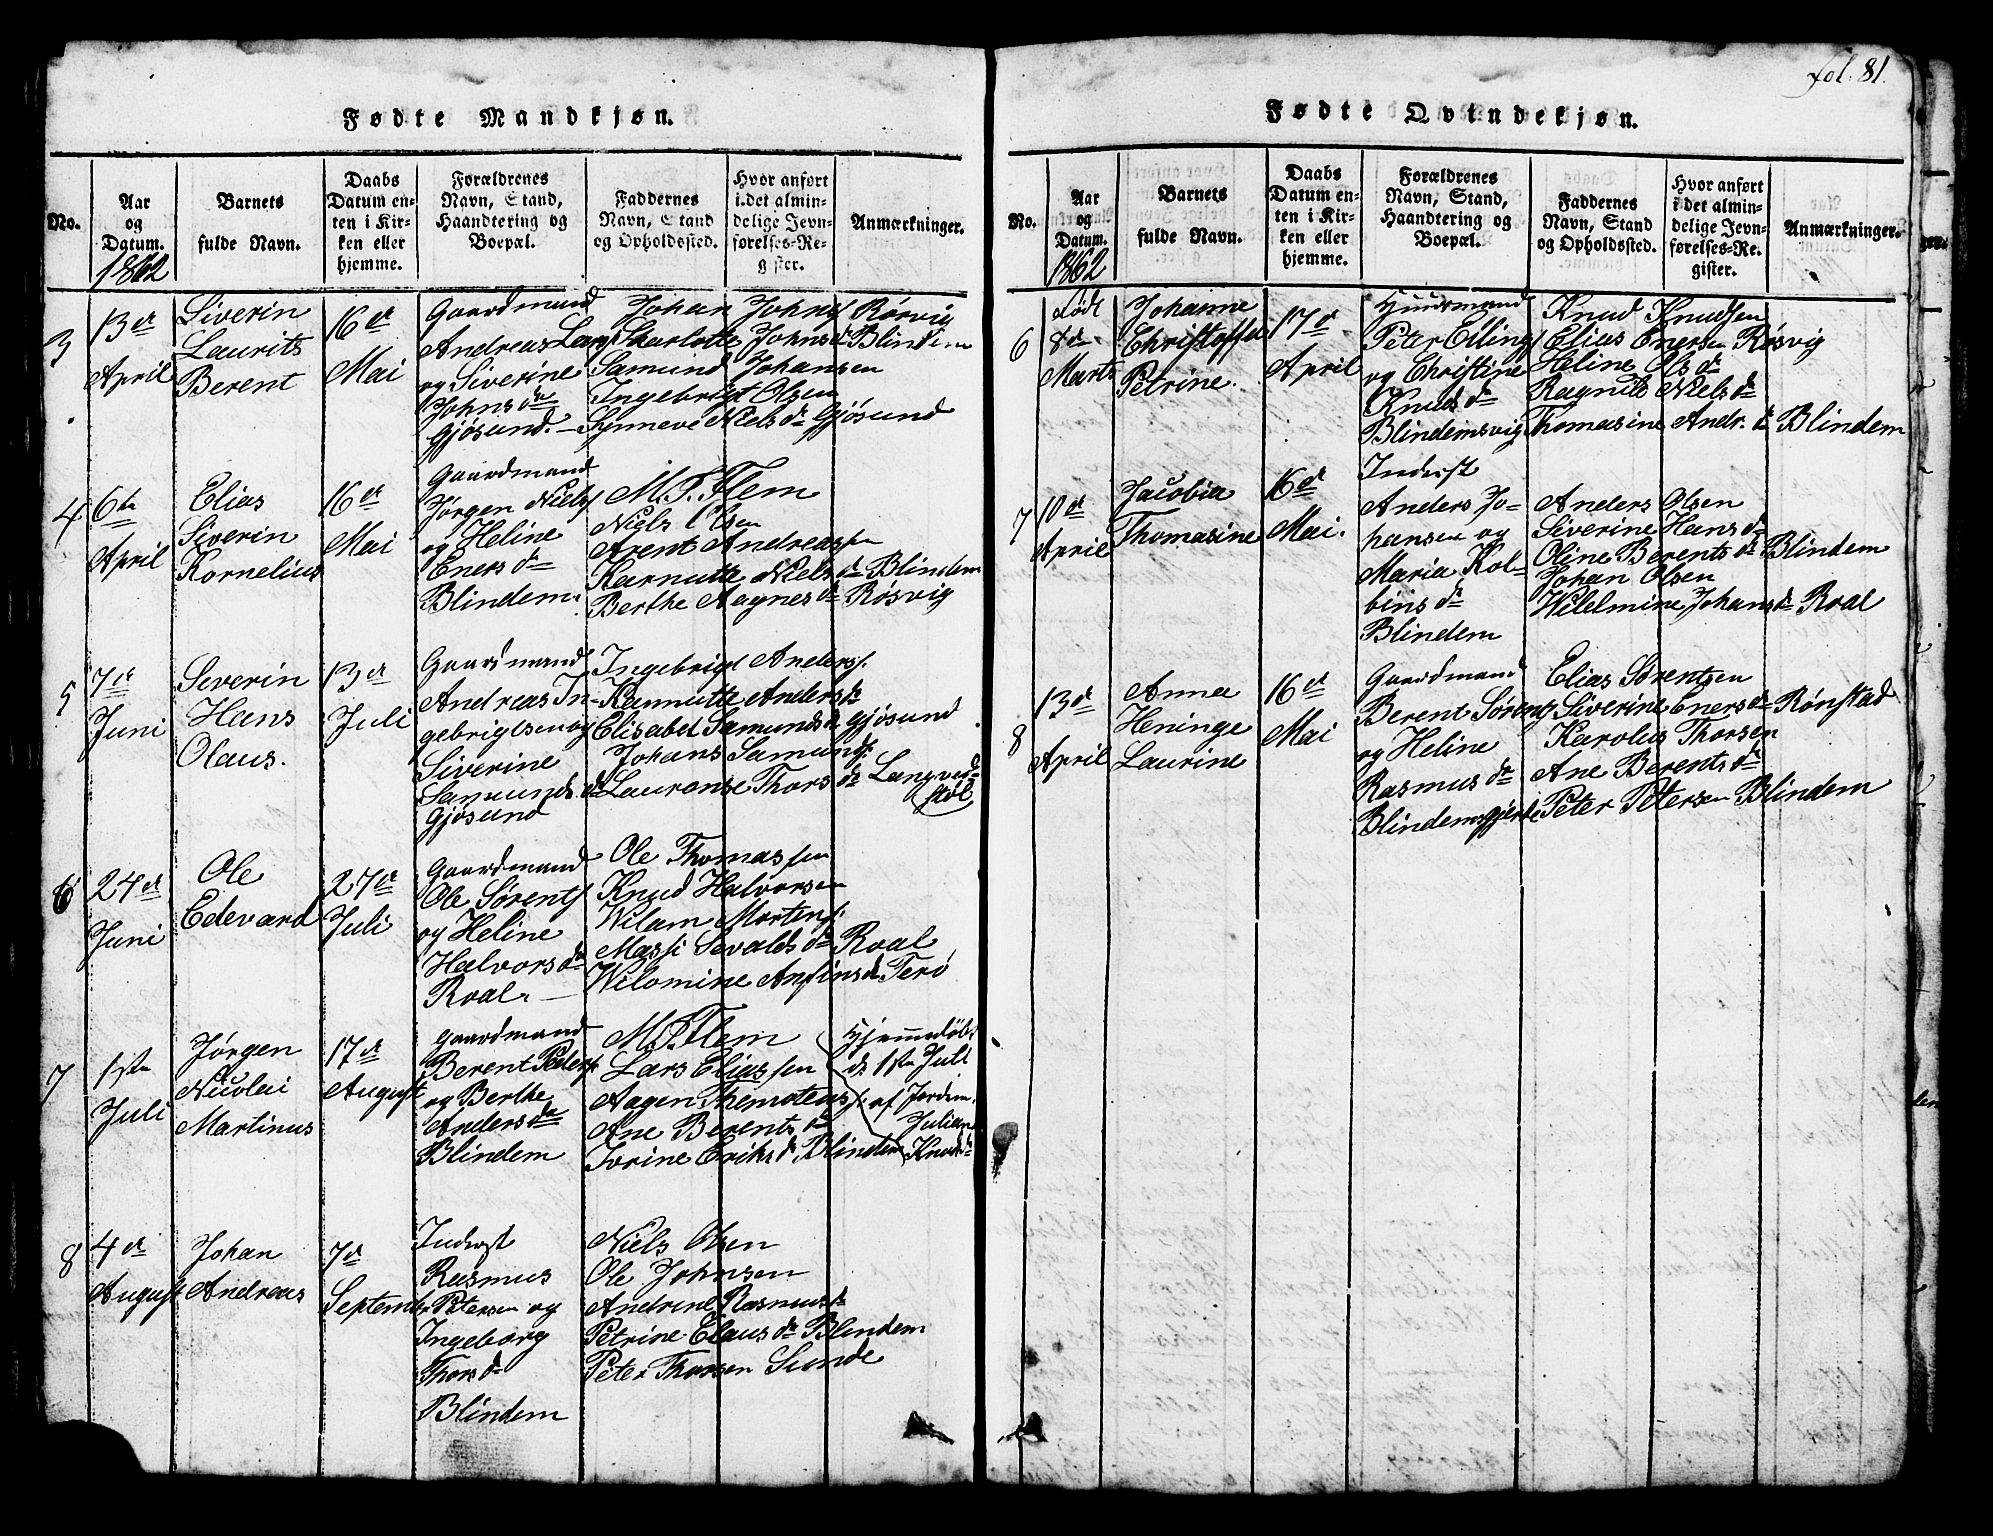 fol. 81.
Fødte Mandkjøn.
No.
Aar
og
Datum.
1862
Barnets
fulde Navn.
Daabs
Datum en-
ten i Kir-
ken eller
hjemme.
Forældrenes
Navn, Stand,
Haandtering og
Boepæl.
Faddernes
Navn, Stand
og Opholdssted.
Hvor anført
i det almin-
delige Jevn-
førelses-Re-
gister.
Anmærkninger.
3
13de
April
Siverin
Laurits
Berent
16de
Mai
Gaardmand
Andreas Lars
og Siverine
Johnsdr
Gjøsund.
Johan Johns Rørvig
Skarlotte Johnsdr Blindem
Samund Johansen
Ingebrigt Olsen
Synneve Nielsdr Gjøsund
4
6te
April
Elias
Siverin
Kornelius
16de
Mai
Gaardmand
Jørgen Niels
og Heline
Enersdr
Blindem.
M. P. Flem
Niels Olsen
Arent Andreassen
Karnutte Nielsdr Blindem
Berthe Aagnesdr Røsvig
5
7de
Juni
Severin
Hans
Olaus.
13de
Juli
Gaardmand
Andreas In-
gebrigtsen og
Siverine
Samundsdr
Gjøsund
Ingebrigt Anders.
Rannutte Andersdr
Elisabet Samundsdr Gjøsund
Johans Samunds.
Lauranse Thorsdr Langved
støl
6
24de
Juni
Ole
Edevard
27de
Juli
Gaardmand
Ole Sørents
og Heline
Halvorsdr
Roal.
Ole Thomassen
Knud Halvorsen
Wilam Mortens.
Massi Sevaldsdr Roal
Wilomine Anfinsdr Terø
7
1ste
Juli
Jørgen
Nicolai
Martinus
17de
August
Gaardmand
Berent Peders
og Berthe
Andersdr
Blindem
M. P. Flem
Lars Eliassen
Aagen Themotens.
Ane Berentsdr
Jorine Eriksdr Blindem
Hjemmedøbt
d. 1ste Juli
af Jordm.
Julian
Knudsdr
8
4de
August
Johan
Andreas
7de
September
Inderst
Rasmus
Petersen og
Ingeborg
Thorsdr
Blindem
Niels Olsen
Ole Johnsen
Andrine Rasmusdr
Petrine Elausdr Blindem
Peter Thorsen Sunde
Fødte Qvindekjøn.
No.
Aar
og
Datum.
1862
Barnets
fulde Navn.
Daabs
Datum en-
ten i Kir-
ken eller
hjemme.
Forældrenes
Navn, Stand,
Haandtering og
Boepæl.
Faddernes
Navn, Stand
og Opholdssted.
Hvor anført
i det almin-
delige Jevn-
førelses-Re-
gister.
Anmærkninger.
6
Født
8de
Marts
Johanne
Christoffa
Petrine.
17de
April
Huusmand
Peter Ellings
og Christine
Knudsdr
Blindemsvig
Knud Knudsen
Elias Enersen Røsvig
Heline Olsdr
Ragnile Nielsdr
Thomasine Andr.dr Blindem
7
10de
April
Jacobia
Thomasine
16de
Mai.
Inderst
Anders Jo-
hansen og
Maria Kol-
binsdr
Blindem
Anders Olsen
Siverine Hansdr
Oline Berentsdr Blindem
Johan Olsen
Wilelmine Johansdr Roal
8
13de
April
Anna
Heninge
Laurine
16de
Mai
Gaardmand
Berent Sørents
og Heline
Rasmusdr
Blindemsgjerde
Elias Sørentsen
Siverine Enersdr Rønstad
Karolus Thorsen
Ane Berentsdr
Peter Petersen Blindem